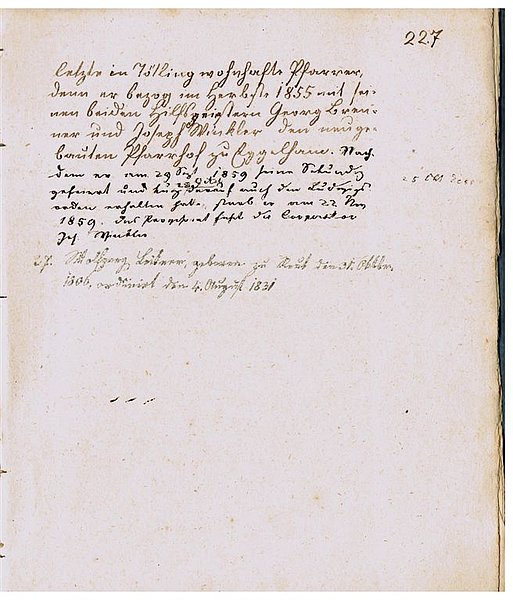 227
letzte in Tötling wohnhafte Pfarrer,
denn er bezog im Herbste 1855 mit sei-
nen beiden Hilfspriestern Georg Brei-
ner und Joseph Winkler den neuge-
bauten Pfarrhof zu Egglham. Nach-
dem er am 29 Sept 1859 seine Sekundiz
gefeiert und kurz darauf auch den Ludwigs
orden erhalten hatte, starb er am 22 Nov
1859. Das Provisorat führt der Cooperator
Jos. Winkler
Wolfgang Leitner, geboren zu den 31. Oktbr.
1806, ordinirt den 4. August 1831